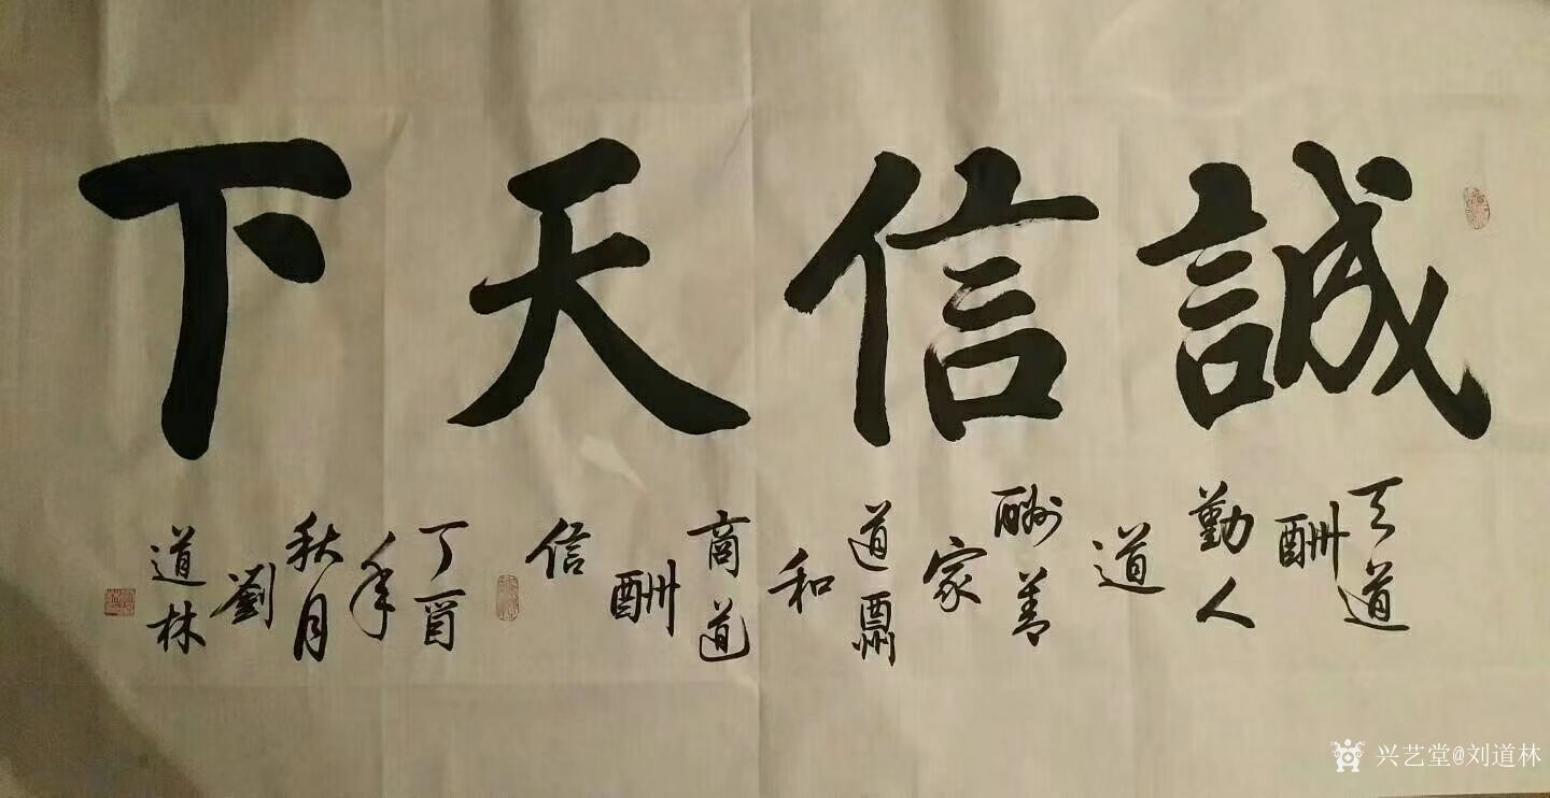 誠信天下
天道
酬
勤人
道
酬善
家
道酬
和
商道
酬
信
丁酉
年
秋月
劉
道林
兴艺堂@刘道林